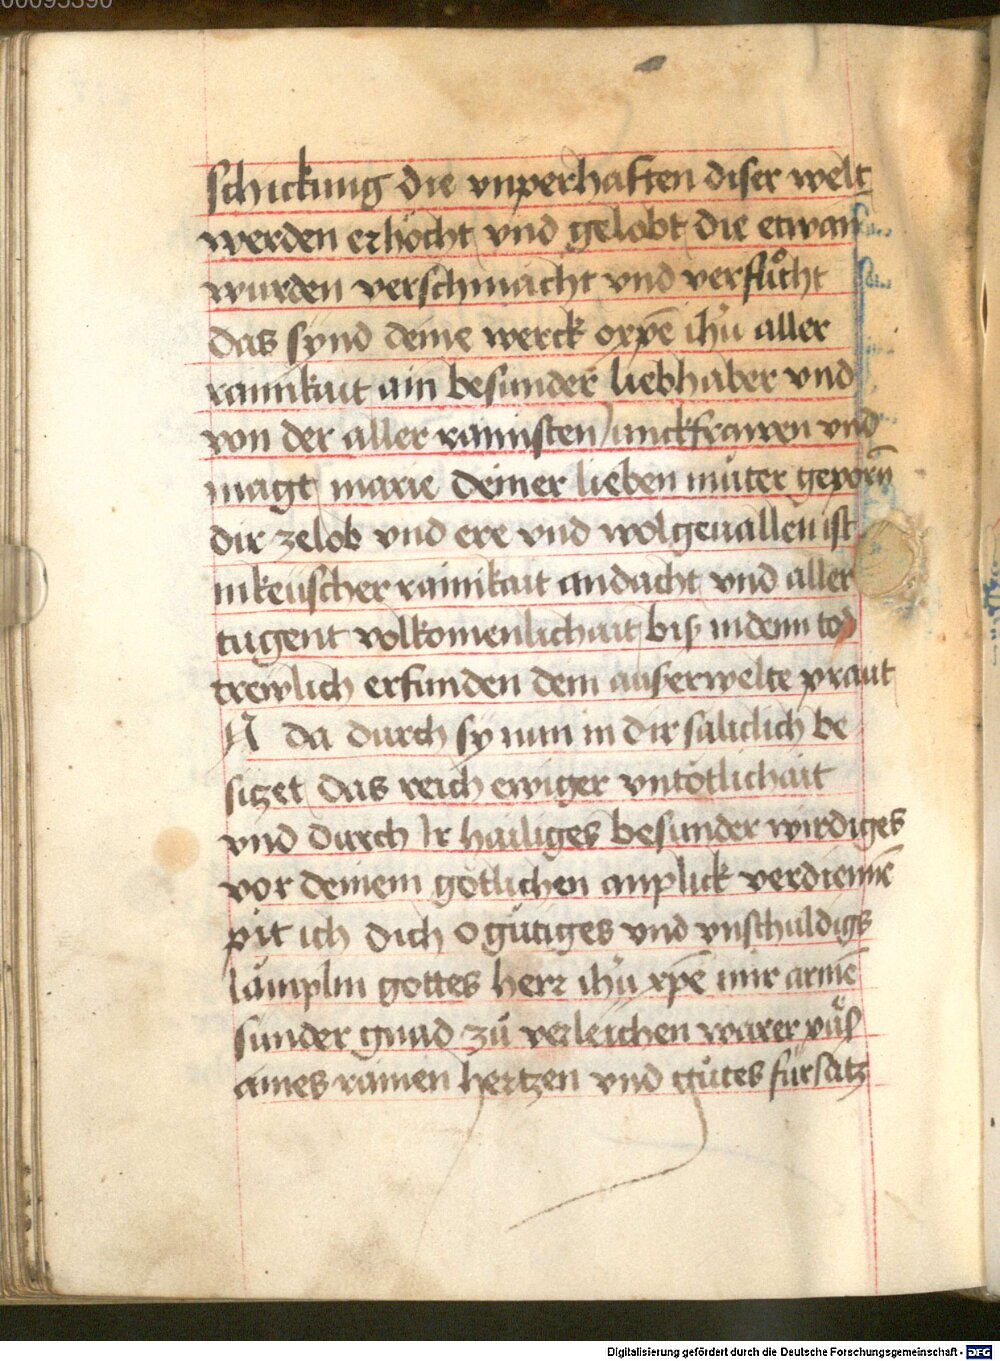 00095390
schickung die vnperhaften diser welt
werden erhöcht vnd gelobt die etwan
wurden verschmächt vnd verflůcht
das synd deine werck o xpē ihū aller
rainikait ain besunder liebhaber vnd
von der aller rainisten junckfrawen vnd
magt marie deiner lieben můter geporn̄
dir zelob vnd ere vnd wolgeuallen ist
in keüscher rainikait andacht vnd aller
tugent volkomenlichait biß in denn tod
trewlich erfunden dem außerwelte praut
N da durch sy nun in dir säliclich be
sitzet das reich ewiger vntötlichait
vnd durch Ir hailiges besunder wirdiges
vor deinem götlichen anplick verdiennē
pit ich dich O gütiges vnd vnschuldigs
lämplin gottes herr ihū xpē mir armē
sunder gnad zů verleichen warer půß
aines rainen hertzen vnd gůtes fürsatz
Digitalisierung gefördert durch die Deutsche Forschungsgemeinschaft - DFG